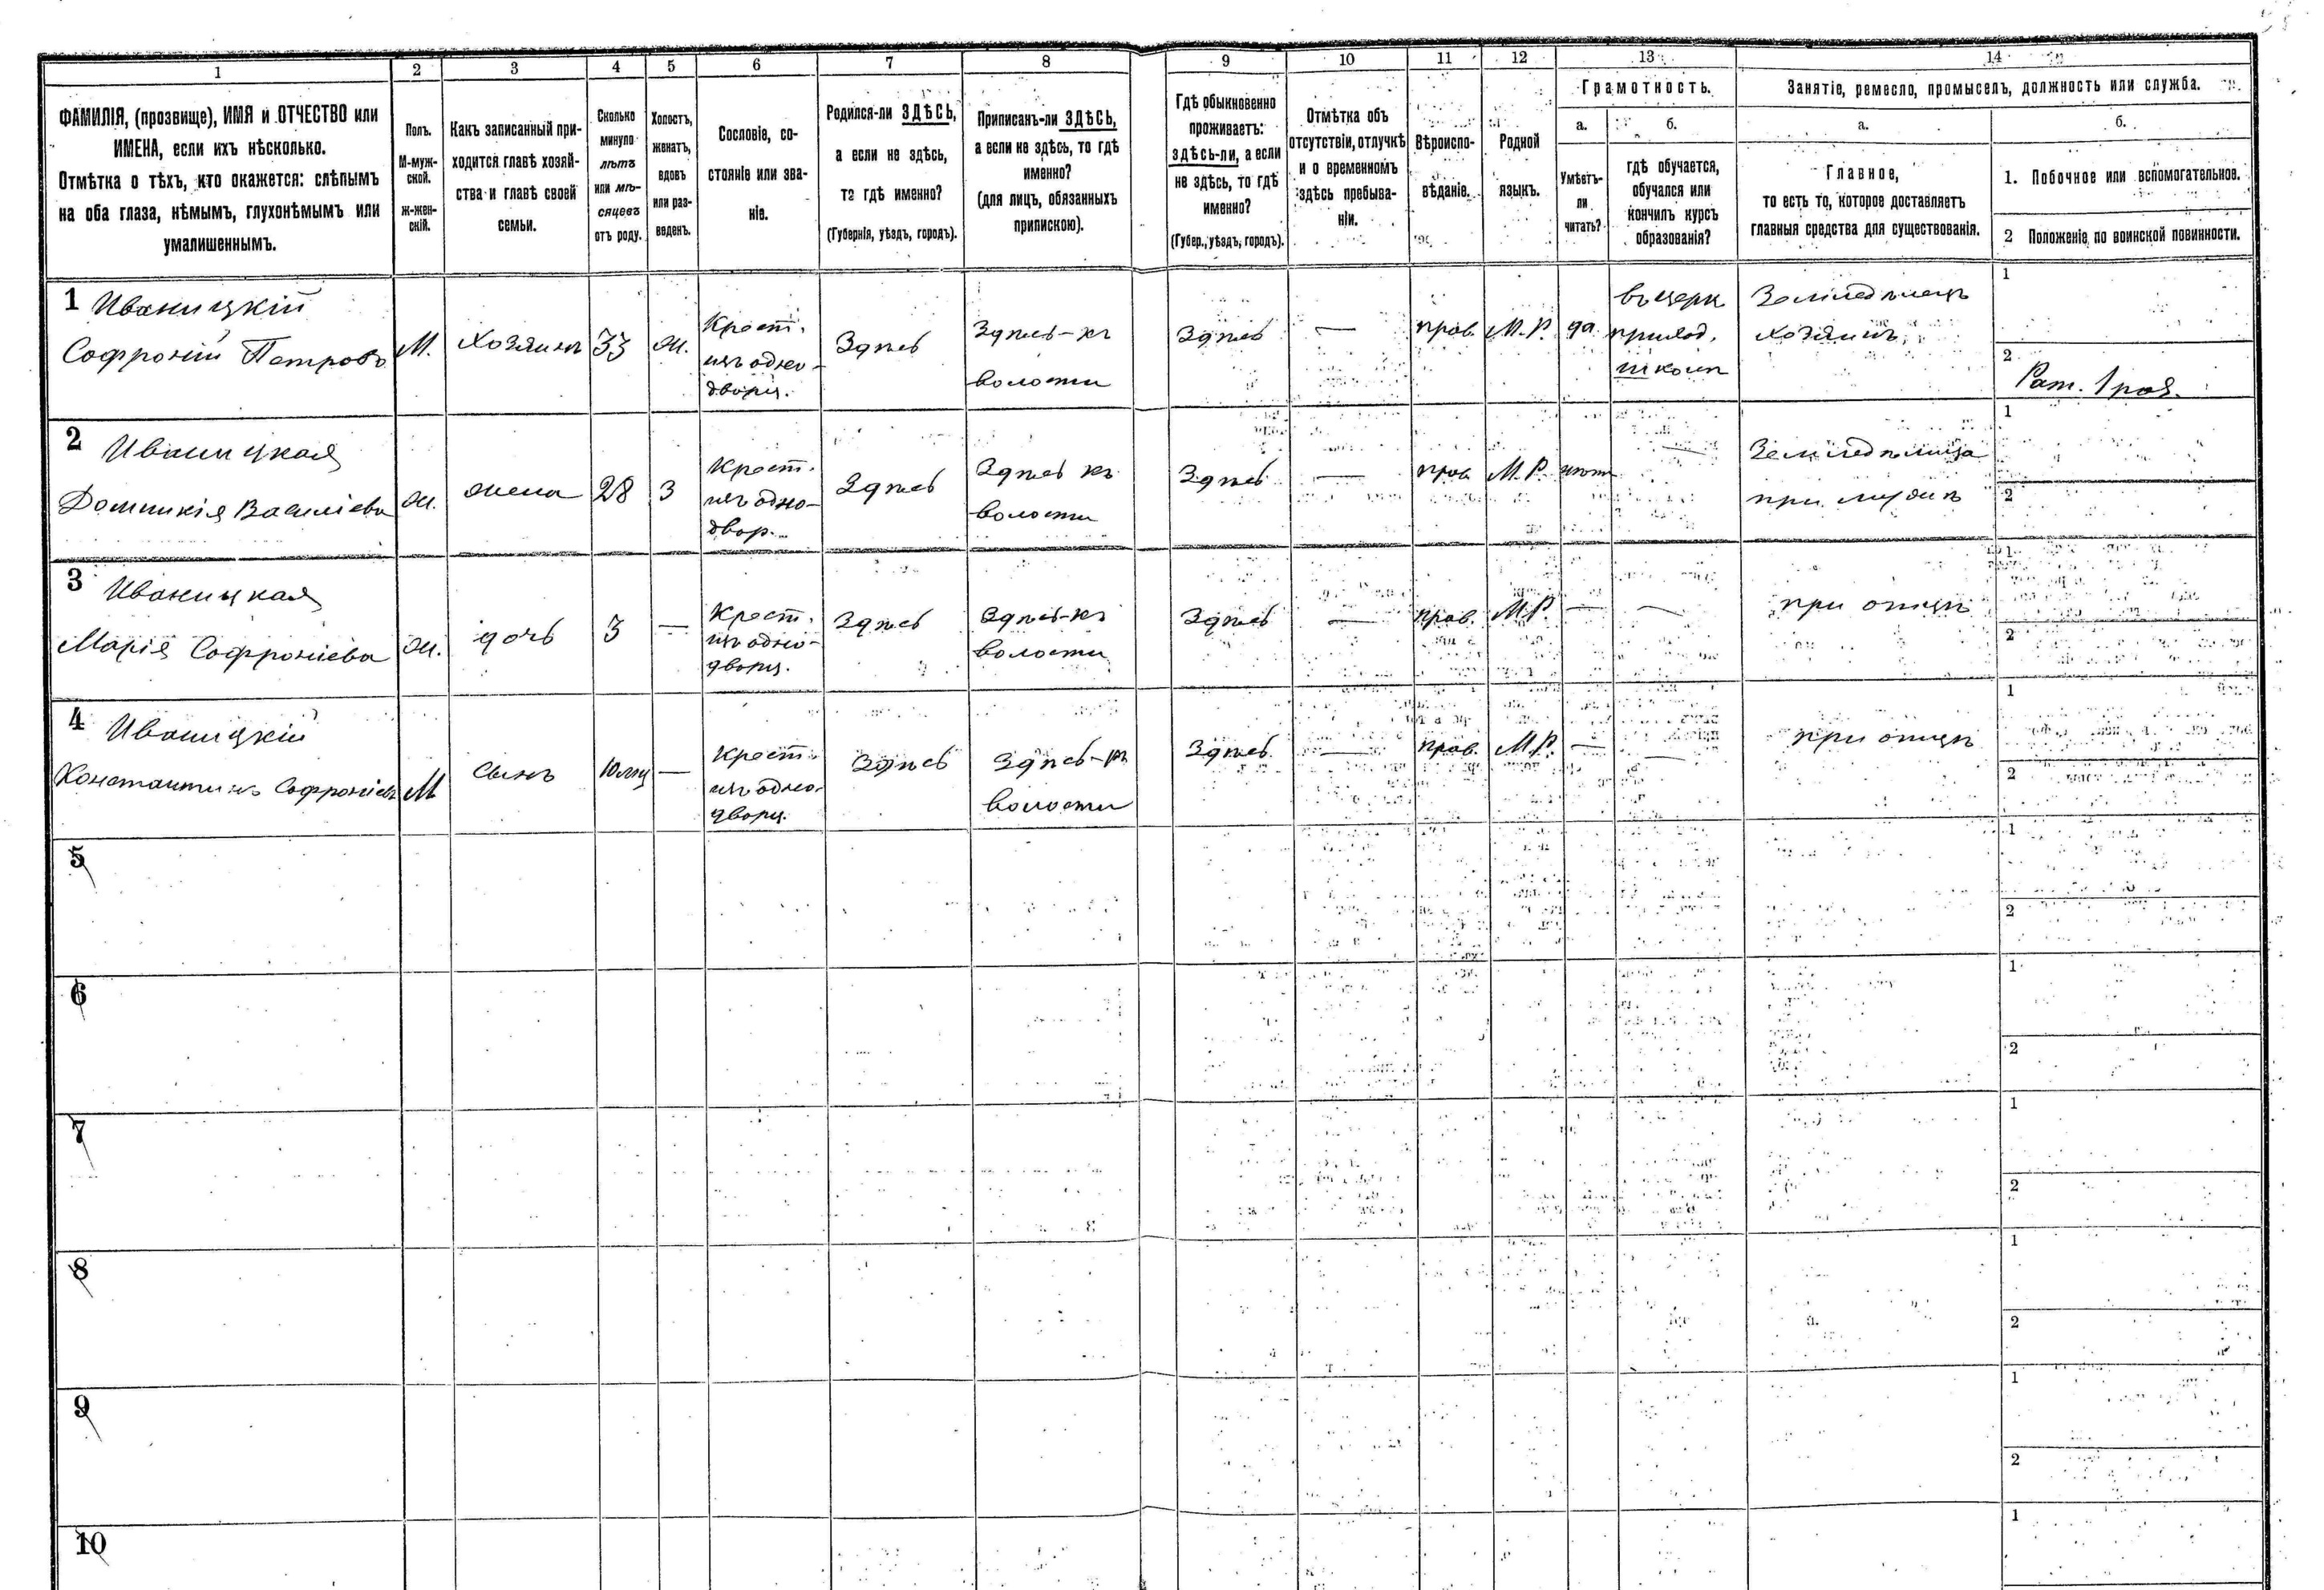 1 2 3 4 5 6 7 8 9 10 11 12 13 14
ФАМИЛІЯ, (прозвище), ИМЯ и ОТЧЕСТВО или
ИМЕНА, если ихъ нѣсколько.
Отмѣтка о тѣхъ, кто окажется: слѣпымъ
на оба глаза, нѣмымъ, глухонѣмымъ или
умалишеннымъ.
Полъ.
М-муж-
ской.
ж-жен-
скій.
Какъ записанный при-
ходится главѣ хозяй-
ства и главѣ своей
семьи.
Сколько
минуло
лѣтъ
или мѣ-
сяцевъ
отъ роду.
Холостъ,
женатъ,
вдовъ
или раз-
веденъ.
Сословіе, со-
стояніе или зва-
ніе.
Родился-ли ЗДѢСЬ,
а если не здѣсь,
то гдѣ именно?
(Губернія, уѣздъ, городъ).
Приписанъ-ли ЗДѢСЬ,
а если не здѣсь, то гдѣ
именно?
(для лицъ, обязанныхъ
припискою).
Гдѣ обыкновенно
проживаетъ:
здѣсь-ли, а если
не здѣсь, то гдѣ
именно?
(Губер., уѣздъ, городъ).
Отмѣтка объ
отсутствіи, отлучкѣ
и о временномъ
здѣсь пребыва-
ніи.
Вѣроиспо-
вѣданіе.
Родной
языкъ.
Грамотность.
а.
Умѣетъ-
ли
читать?
б.
гдѣ обучается,
обучался или
кончилъ курсъ
образованія?
Занятіе, ремесло, промыселъ, должность или служба.
а.
Главное,
то есть то, которое доставляетъ
главныя средства для существованія.
б.
1. Побочное или вспомогательное.
2 Положеніе по воинской повинности.
1 Иваницкій
Софроній Петровъ
М.
Хозяинъ
33
ж.
Крест.
изъ одно-
дворц.
Здѣсь
Здѣсь-къ
волости
Здѣсь
—
прав.
М.Р.
да
въ церк
приход.
школѣ
Земледѣлецъ
хозяинъ
1
2
Рат. 1 раз.
2 Иваницкая
Домникія Василіева
ж.
жена
28
З
Крест.
изъ одно-
двор.
Здѣсь
Здѣсь къ
волости
Здѣсь
—
прав
М.Р.
нѣтъ
—
Земледѣлица
при мужѣ
1
2
3 Иваницкая
Марія Софроніева
ж.
дочь
3
—
Крест.
изъ одно-
дворц.
Здѣсь
Здѣсь-къ
волости
Здѣсь
—
прав.
М.Р.
—
—
при отцѣ
1
2
4 Иваницкій
Константинъ Софроніевъ
М
сынъ
10 мц
—
Крест.
изъ одно-
дворц.
Здѣсь
Здѣсь-къ
волости
Здѣсь
—
прав.
М.Р.
—
—
при отцѣ
1
2
5
1
2
6
1
2
7
1
2
8
1
2
9
1
2
10
1